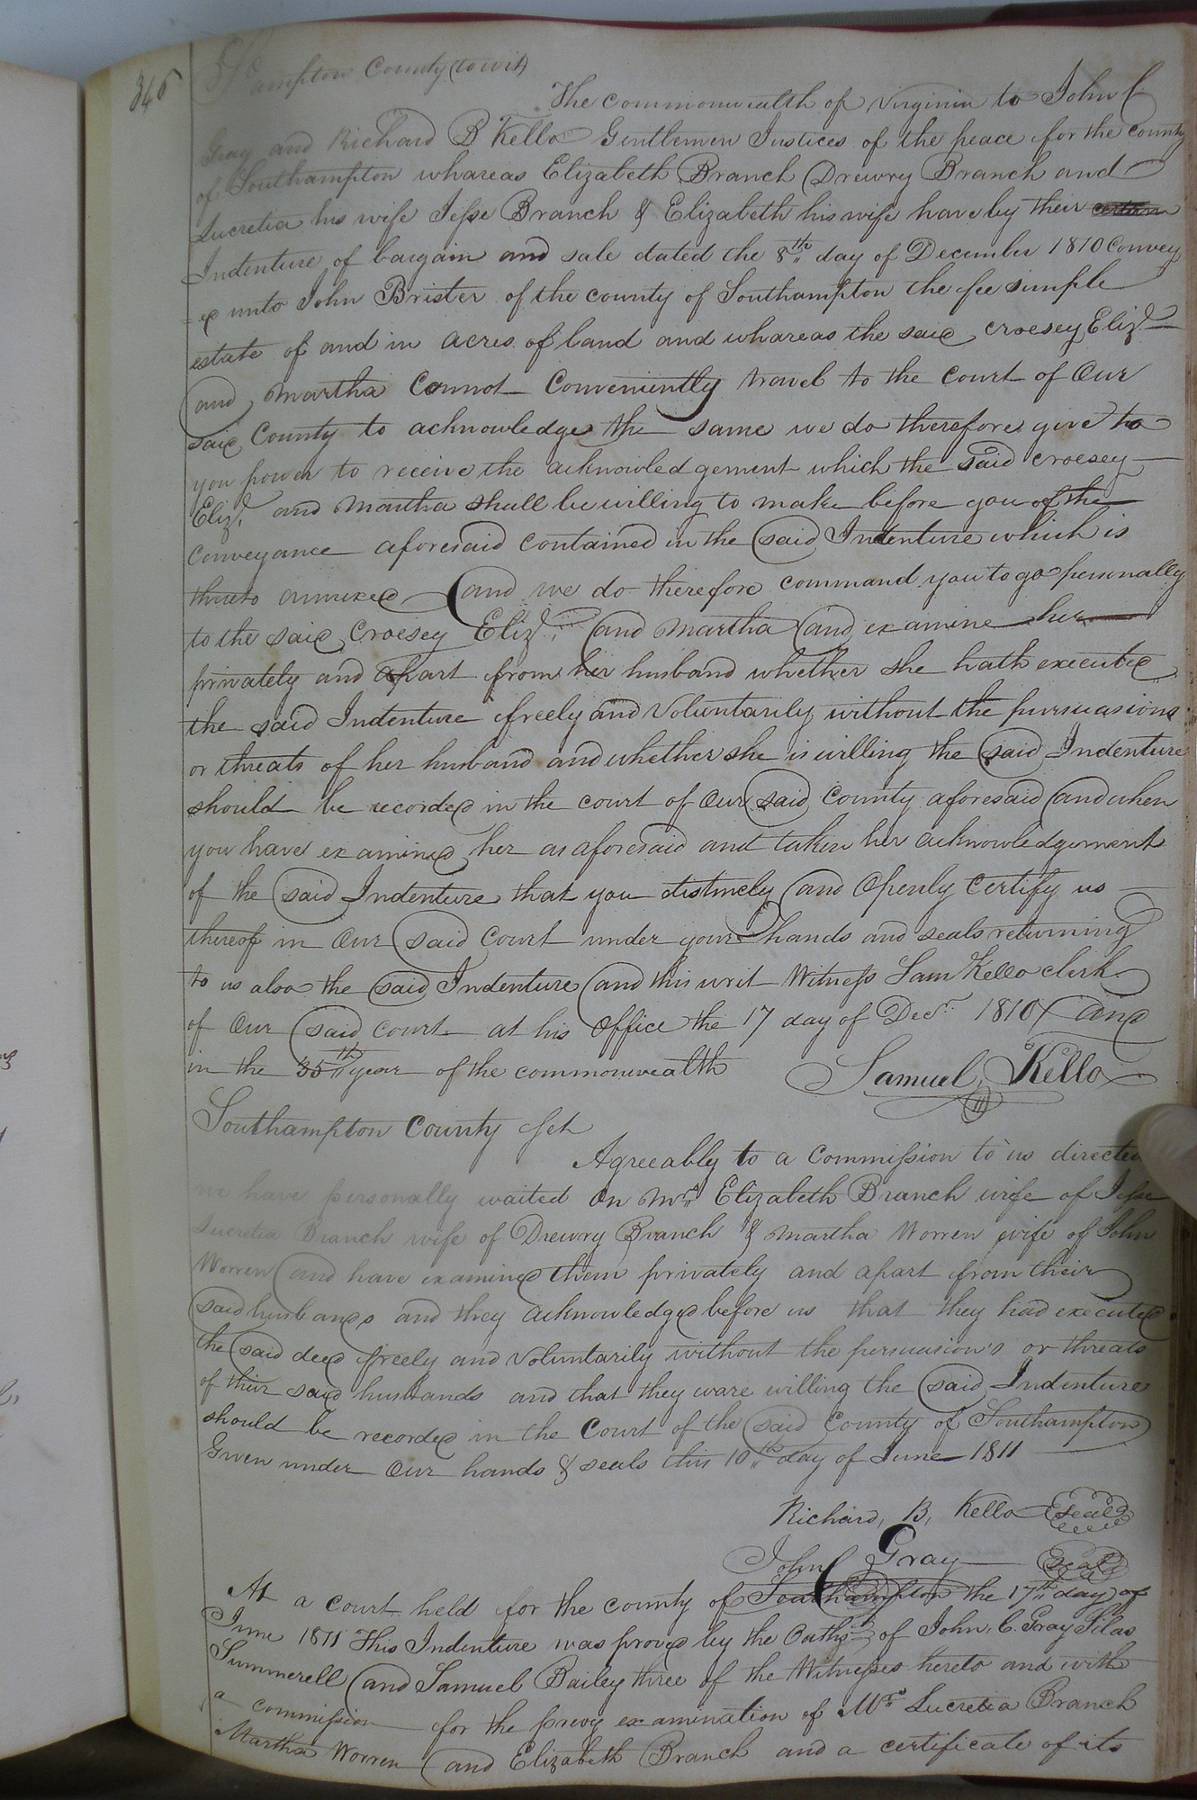 346
S/ampton County (to wit)
The commonwealth of Virginia to John C
Gray and Richard B Kello Gentlemen Justices of the peace for the county
of Southampton whareas Elizabeth Branch Drewry Branch and
Lucretia his wife Jesse Branch & Elizabeth his wife have by their
Indenture of bargain and sale dated the 8th day of December 1810 Convey
=ed unto John Brister of the county of Southampton the fee simple
estate of and in acres of land and whareas the said croesey Eliz.
and Martha Cannot Conveniently travel to the court of Our
said County to acknowledge the same we do therefore give to
you power to receive the acknowledgement which the said croesey
Eliz. and Martha shall be willing to make before you of the
Conveyance aforesaid contained in the said Indenture which is
thereto annexed and we do therefore command you to go personally
to the said Croesey Eliz. and Martha and examine her
privately and apart from her husband whether she hath executed
the said Indenture freely and Voluntarily without the pursuasions
or threats of her husband and whether she is willing the said Indenture
should be recorded in the court of Our said County aforesaid and when
you have examined her as aforesaid and taken her acknowledgement
of the said Indenture that you distinctly and Openly Certify us
thereof in Our said Court under your hands and seals returning
to us also the said Indenture and this writ Witness Sam Kello clerk
of Our said Court at his Office the 17 day of Decr 1810 and
in the 35th year of the commonwealth Samuel Kello
Southampton County Sct
Agreeably to a Commission to us directed
we have personally waited On Mrs Elizabeth Branch wife of Jesse
Lucretia Branch wife of Drewry Branch & Martha Worren wife of John
Worren and have examined them privately and apart from their
said husbands and they acknowledged before us that they had executed
the said deed freely and Voluntarily without the persuasion's or threats
of their said husbands and that they ware willing the said Indenture
should be recorded in the Court of the said County of Southampton
Given under Our hands & seals this 10th day of June 1811
Richard, B, Kello seal
John C Gray seal
At a Court held for the county of Southampton the 17th day of
June 1811 This Indenture was proved by the Oaths of John C. Gray Silas
Summerell and Samuel Bailey three of the Witnesses hereto and with
a commission for the privy examination of Mrs Lucretia Branch
Martha Worren and Elizabeth Branch and a certificate of its